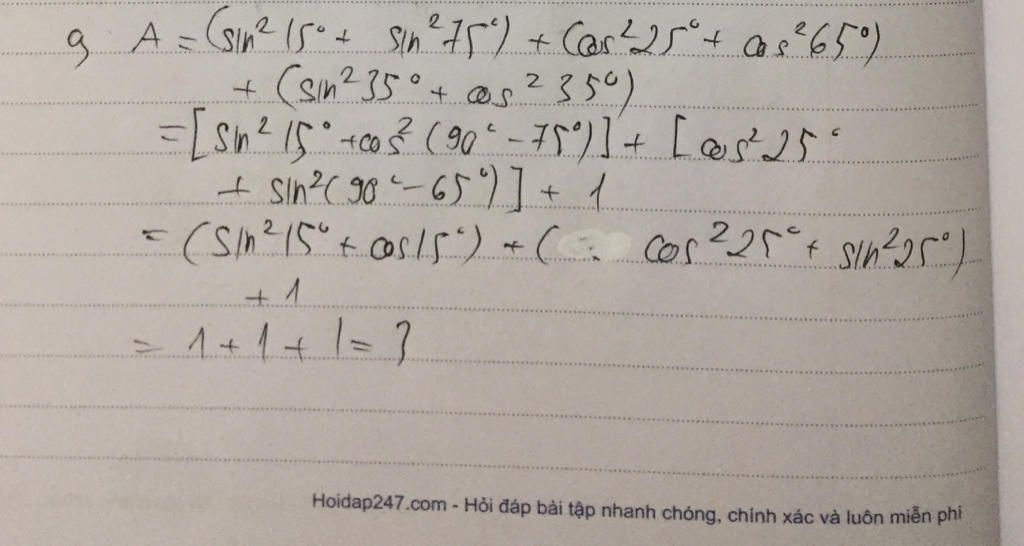 g A = (sin²15° + sin²75°) + (cos²25° + cos²65°)
+ (sin²35° + cos²35°)
= [sin²15° + cos²(90° - 75°)] + [cos²25°
+ sin²(90° - 65°)] + 1
= (sin²15° + cos15°) + ( cos²25° + sin²25°)
+ 1
= 1 + 1 + 1 = 3
Hoidap247.com - Hỏi đáp bài tập nhanh chóng, chính xác và luôn miễn phí